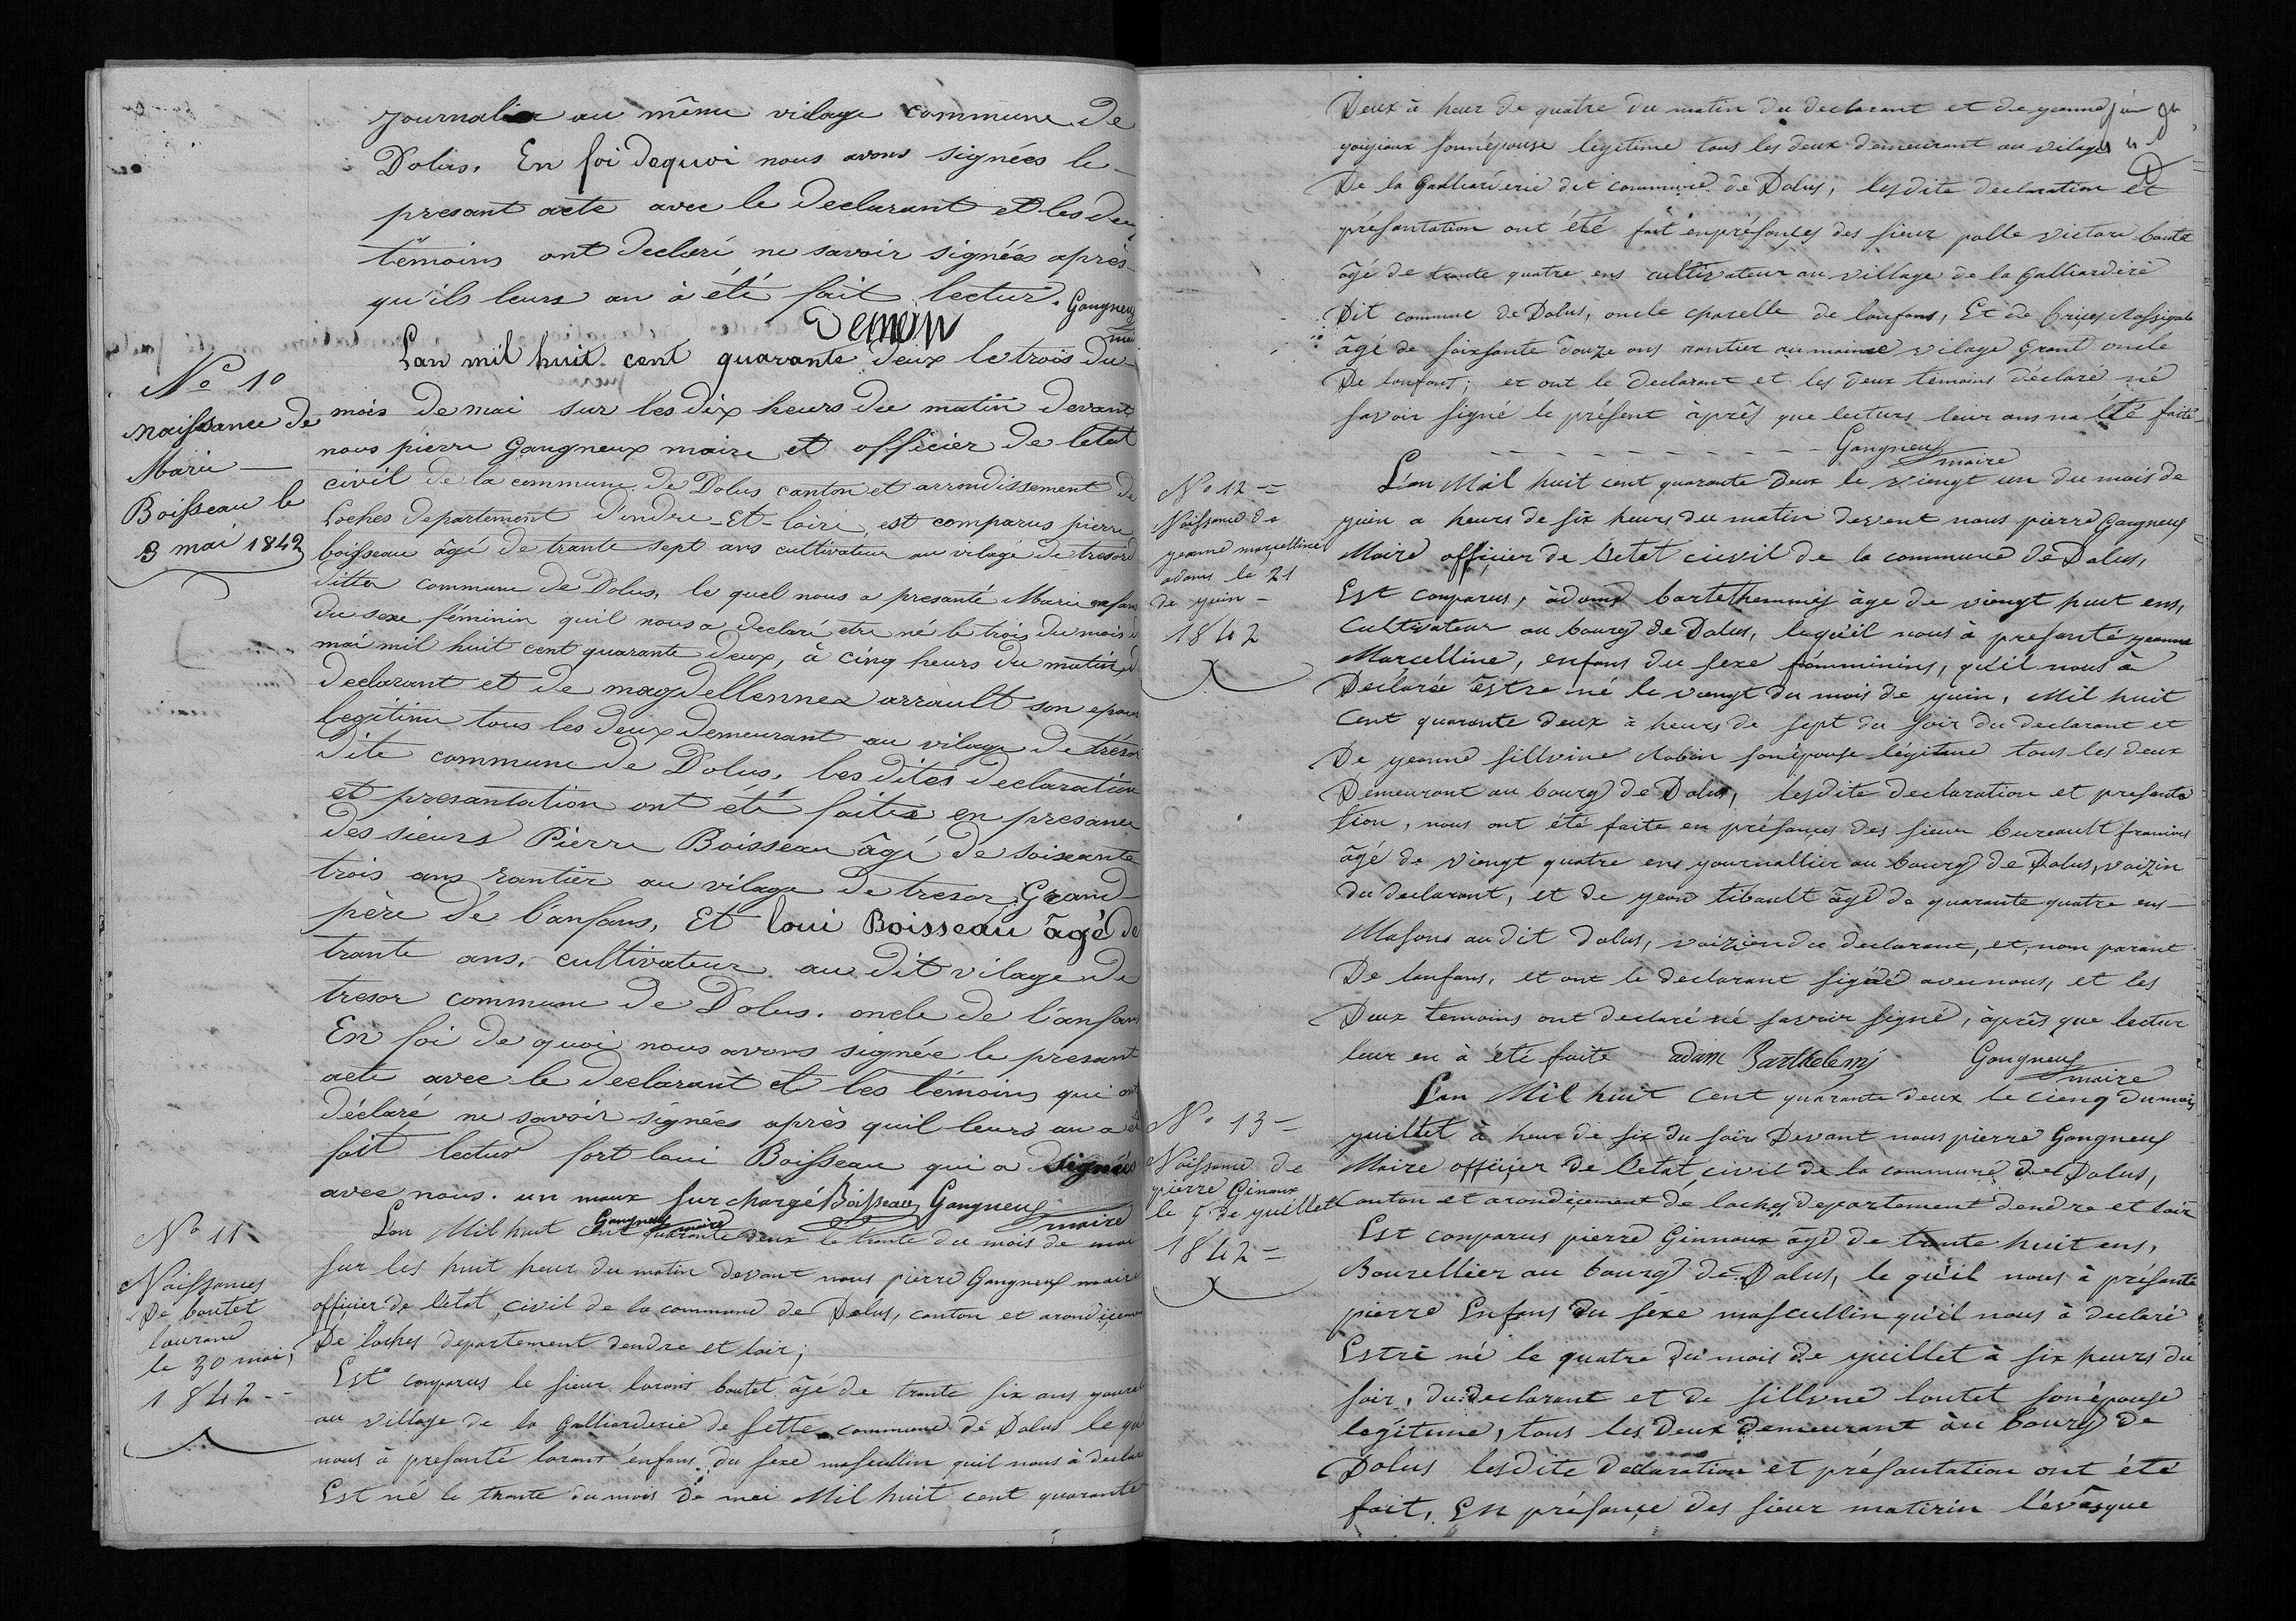 journalier au même vilage commune de
Dolus. En foi dequoi nous avons signées le
presant acte avec le declarant et les deux
témoins ont declaré ne savoir signées après
qu'ils leurs an à été fait lectur. Gangneux
maire
No 10
Naissance de
Marie
Boisseau le
3 mai 1842
Lan mil huit cent quarante deux le trois du
mois de mai sur les dix heurs du matin devant
nous pierre Gangneux maire et officier de letat
civil de la commune de Dolus canton et arrondissement de
Loches departement d'indre-Et-loire, est comparus pierre
boisseau âgé de trante sept ans cultivateur au vilage de tresor
ditte commune de Dolus, le quel nous a presanté Marie enfans
du sexe féminin quil nous a declaré etre né le trois du mois de
mai mil huit cent quarante deux, à cinq heurs du matin du
declarant et de magdellennea arrault son epouse
legitime tous les deux demeurant au vilage de trésor
dite commune de Dolus. les dites declaration
et presantation ont été faites en presance
des sieurs Pierre Boisseau âgé de soiscante
trois ans rantier au vilage de tresor, Grand
père de l'anfans, Et loui Boisseau âgé de
trante ans, cultivateur au dit vilage de
tresor commune de Dolus. oncle de l'anfans
En foi de quoi nous avons signée le presant
acte avec le declarant et les témoins qui ont
déclaré ne savoir signées après quil leurs an a été
fait lectur fort loui Boisseau qui a signée
avec nous. un maux surchargé Boisseau Gangneux
maire
Gangneux maire
No 11
Naissances
De boutet
laurand
le 30 mai,
1842
Lan Mil huit cent quarante deux le trante du mois de mai
sur les huit heur du matin devant nous pierre Gangneux maire
officier de l'etat civil de la commune de Dolus, canton et arondiçement
De loches departement dendre et loir;
Est conparus le sieur lorans boutet âjé de trante six ans
au village de la Galliarderie de sette commune de Dolus le
nous à presanté lorant énfans du sexe mascullin quil nous à declare
Est né le trante du mois de mai Mil huit cent quarante
Deux à heur de quatre du matin du declarant et de yeanne
sonnépouse legitime tous les deux demeurant au vilage
De la Galliarderie dit commune de Dolus, lesdite declaration et
présantation ont été fait en présances des sieur palle victore boutet
âgé de trante quatre ens cultivateur au village de la Galliarderie
Dit commune de Dolus, oncle de lanfans, Et de
âge de soixsante douze ans rantier au maime vilage grant oncle
De lanfans; et ont le declarant et les deux temoins déclaré né
savoir signé le présent àprês que lecturs leur été faite
Gangneux
maire
No 12
Naissance de
yeanne marcelline
adams le 21
de yuin
1842
L'an Mil huit cent quarante deux le viengt un du mois de
yuin a heurs de six heurs du matin devent nous pierre Gangneux
Maire officier de letat cievil de la commune de Dolus,
Est conparus, àdams bartethemmis âge de viengt huit ens,
Cultivateur au bourg de Dolus, lequ'il nous à presanté yeanne
Marcelline, enfans du sexe fémminins, qu'il nous à
Declarée êstre né le viengt du mois de yuin, Mil huit
Cent quarante deux à heurs de sept du soir du declarant et
De yeanne sillvine Robin sonépouse légitime tous les deux
Demeurant au bourg de Dolus, lesdite declaration et presanta
tion, nous ont été faite en présances des sieur bureault
âgé de viengt quatre ens yournallier au bourg de Dolus, voizin
du declarant, et de yean tibault âgé de quarante quatre ens
Masons au dit dolus, voizien du declarant, et non parant
De lanfans, et ont le declarant signé avec nous, et les
Deux temoins ont declaré né savoir signé, àprês que lectur
leur en à été faite adam Barthelemi Gangneux
maire
No 13
Naissance de
pierre Ginoux
le 5 de yuillet
1842
L'an Mil huit Cent quarante deux le cienq du mois
yuillet à heur de six du soir Devant nous pierre Gangneux
Maire officier de l'etat civil de la commune de Dolus,
Canton et arondiçement de loches departement dendre et loir
Est conparus pierre Ginnoux âgé de trante huit ens,
Bourellier au bourg de Dolus, le qu'il nous à présanté
pierre Enfans du séxe mascullin qu'il nous à declaré
Estré né le quatre du mois de yuillet à six heurs du
soir, du declarant et de sillvine boutet sonépouse
legitime, tous les Deux demeurant àu bourg de
Dolus lesdite declaration et présantation ont été
fait, En présance des sieur matirin lévâsque